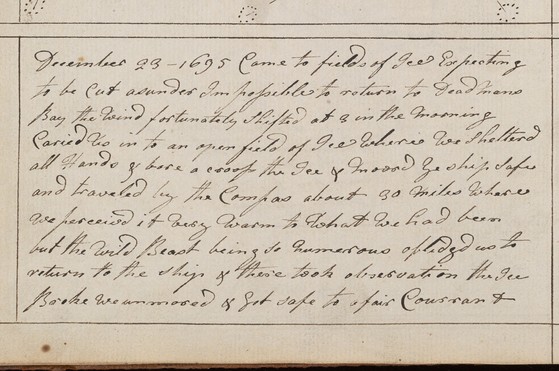 December 23 - 1695 Came to fields of Ice Expecting
to be Cut asunder Impossible to return to Deadmans
Bay the Wind fortunately Shifted at 3 in the Morning
Caried Us in to an open field of Ice Where We Shelterd
all Hands & bore a croop the Ice & moord Ye ship safe
and traveled by the Compas about 30 miles Where
we perceived it Very Warm to What We had been
but the Wild Beast being so numerous oblidged us to
return to the ship & there took observation the Ice
Broke we unmored & Got safe to a fair Courrant